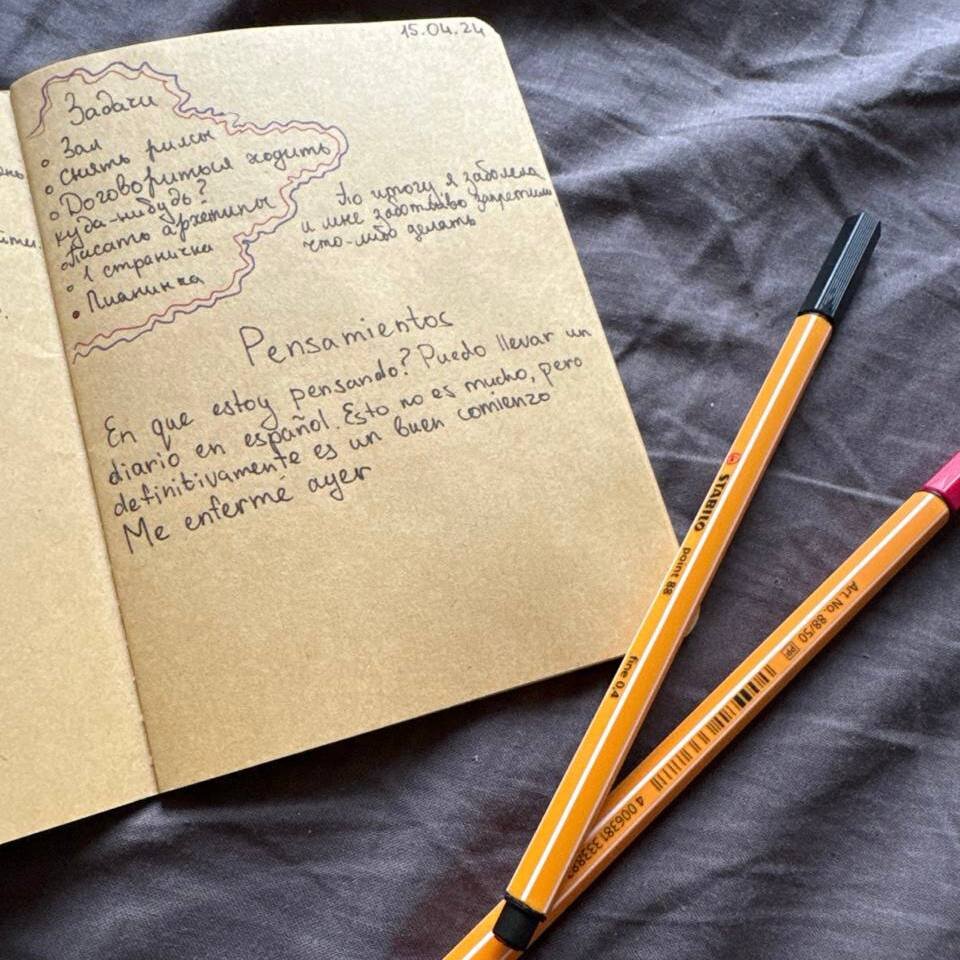 15.04.24
Задачи
Зал
Снять рилсы
Договориться ходить
куда-нибудь?
Писать архетипы
1 страничка
Пианинка
По итогу я заболела
и мне заботливо запретили
что-либо делать
Pensamientos
En que estoy pensando? Puedo llevar un
diario en español. Esto no es mucho, pero
definitivamente es un buen comienzo
Me enfermé ayer
STABILO point 88 fine 0,4
Art. No. 88/50 PP
4 006381 333